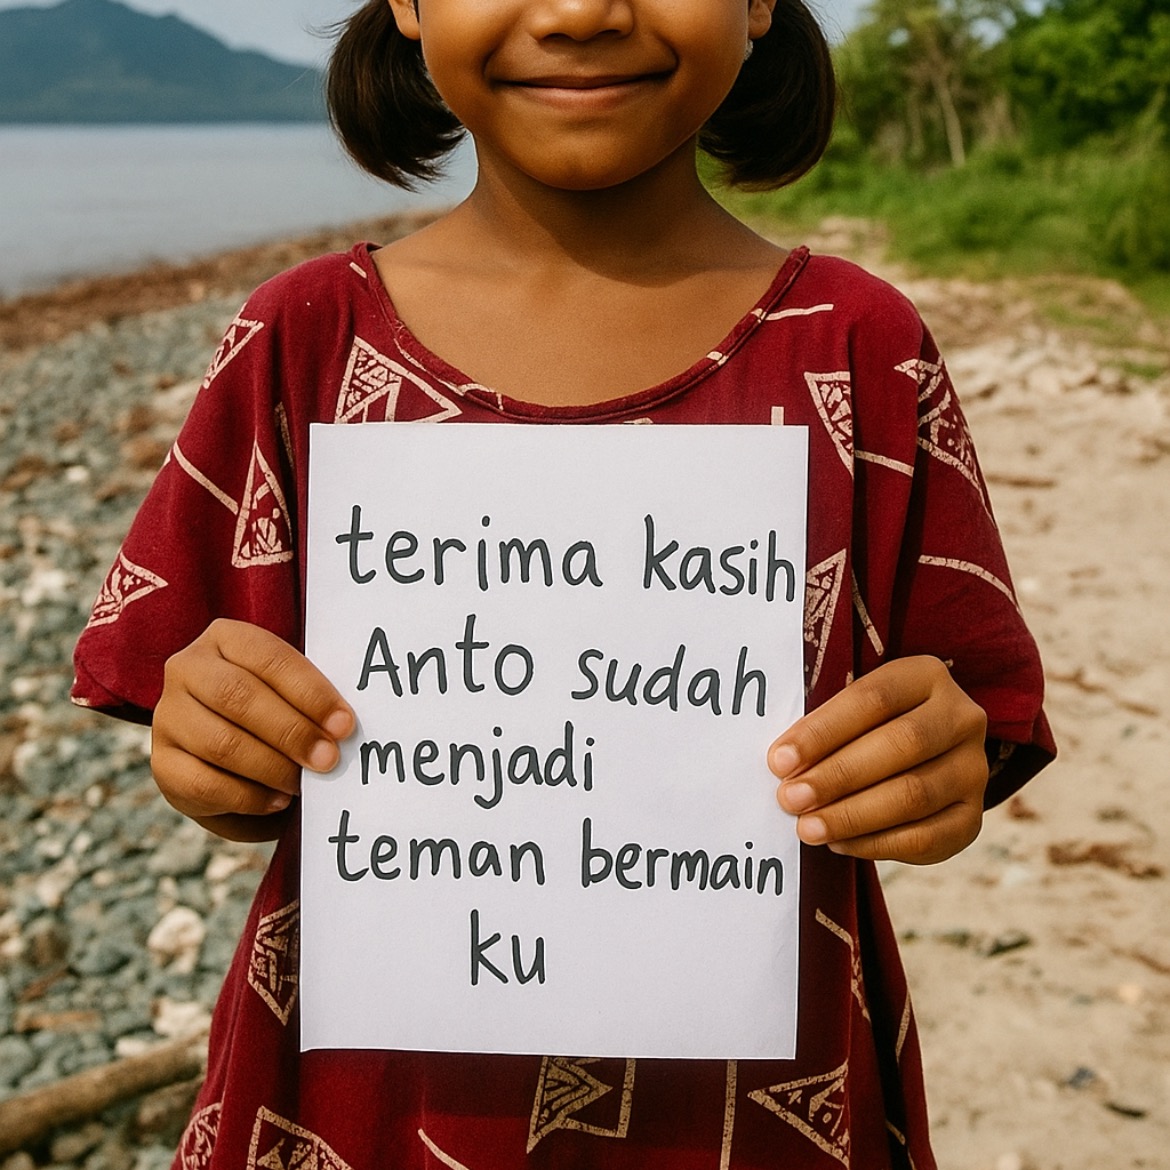 terima kasih
Anto sudah
menjadi
teman bermain
ku